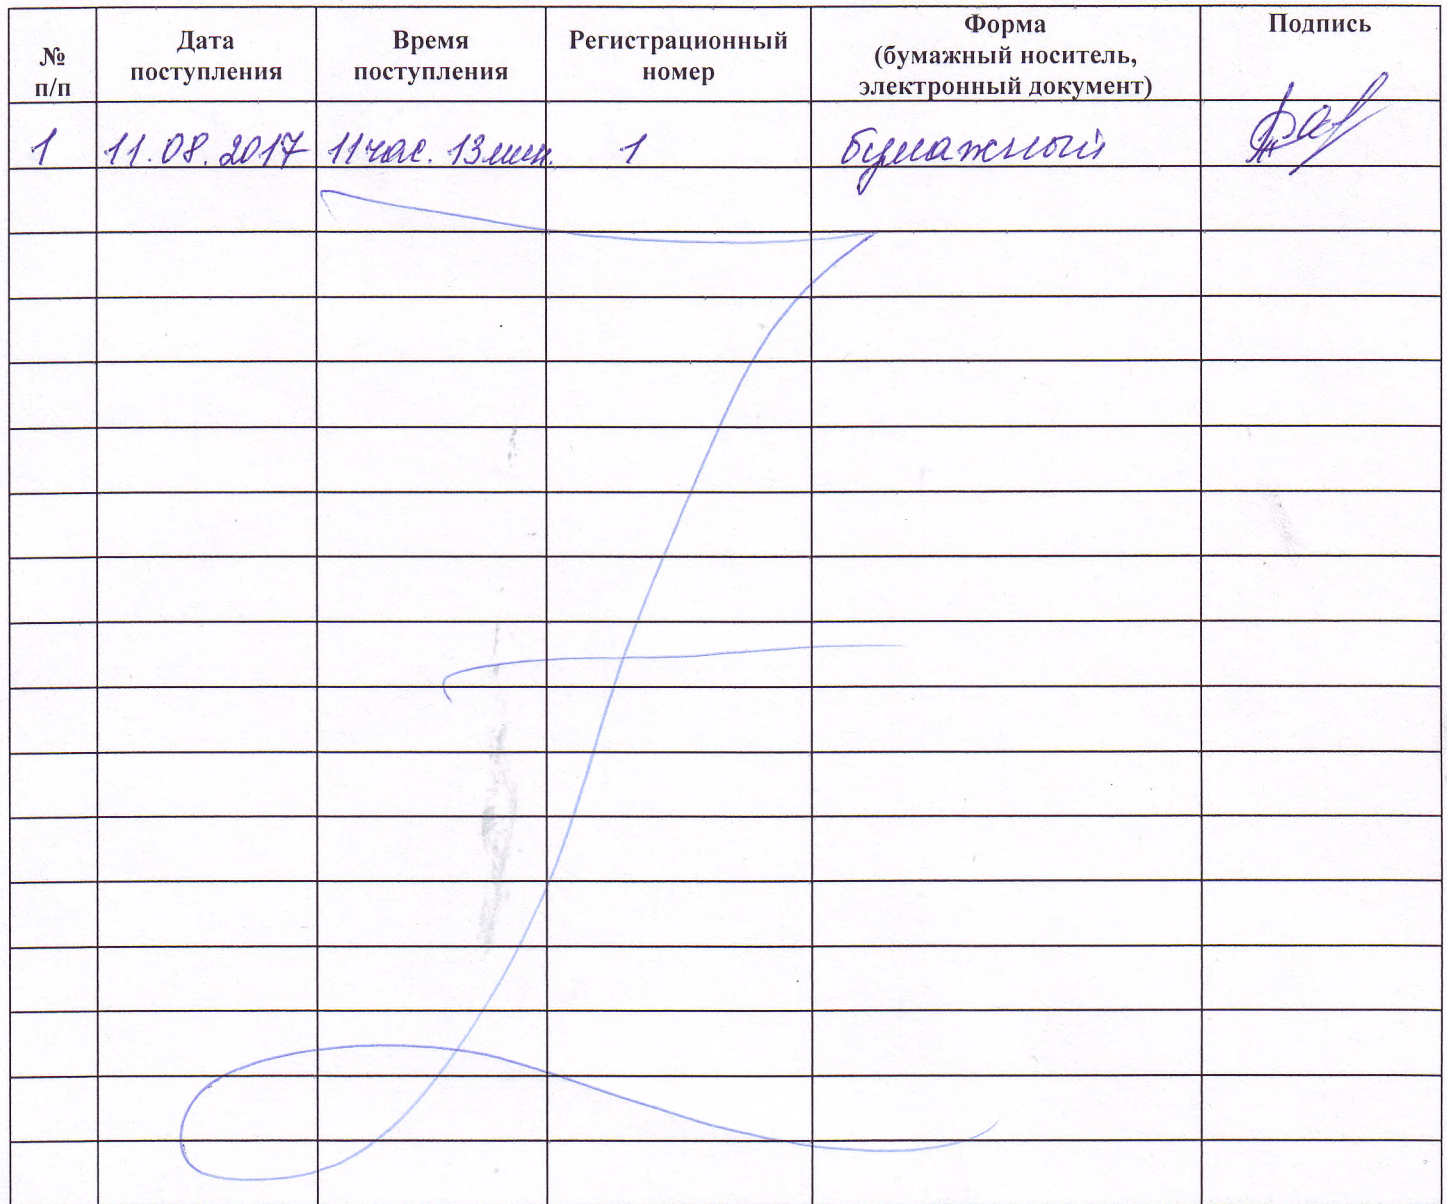 № п/п
Дата поступления
Время поступления
Регистрационный номер
Форма (бумажный носитель, электронный документ)
Подпись
1 11.08.2017 11 час. 13 мин. 1 бумажный